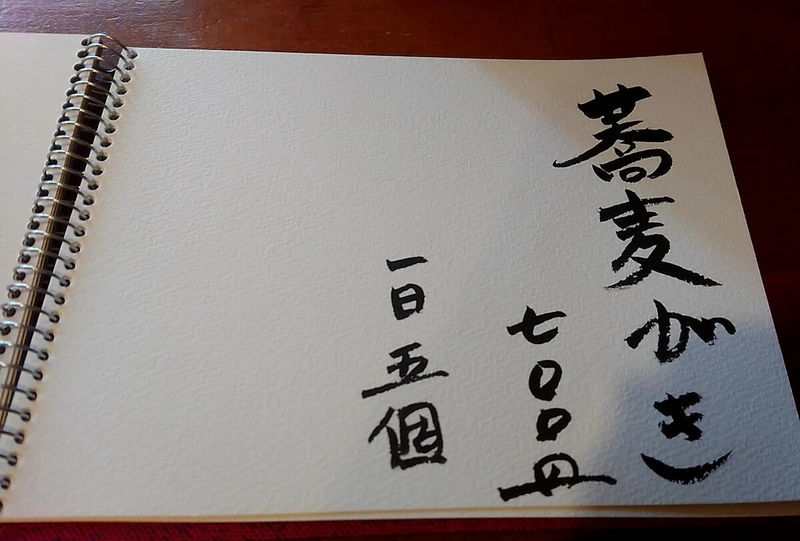 蕎麦がき
七００円
一日五個